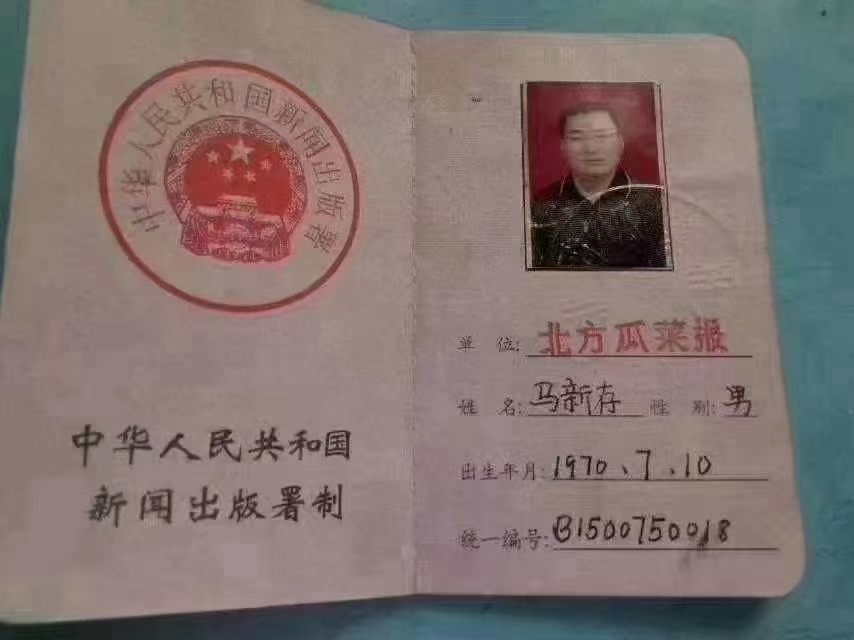 中华人民共和国新闻出版署
中华人民共和国
新闻出版署制
单 位: 北方瓜菜报
姓 名: 马新存 性 别: 男
出生年月: 1970、7、10
统一编号: B1500750018